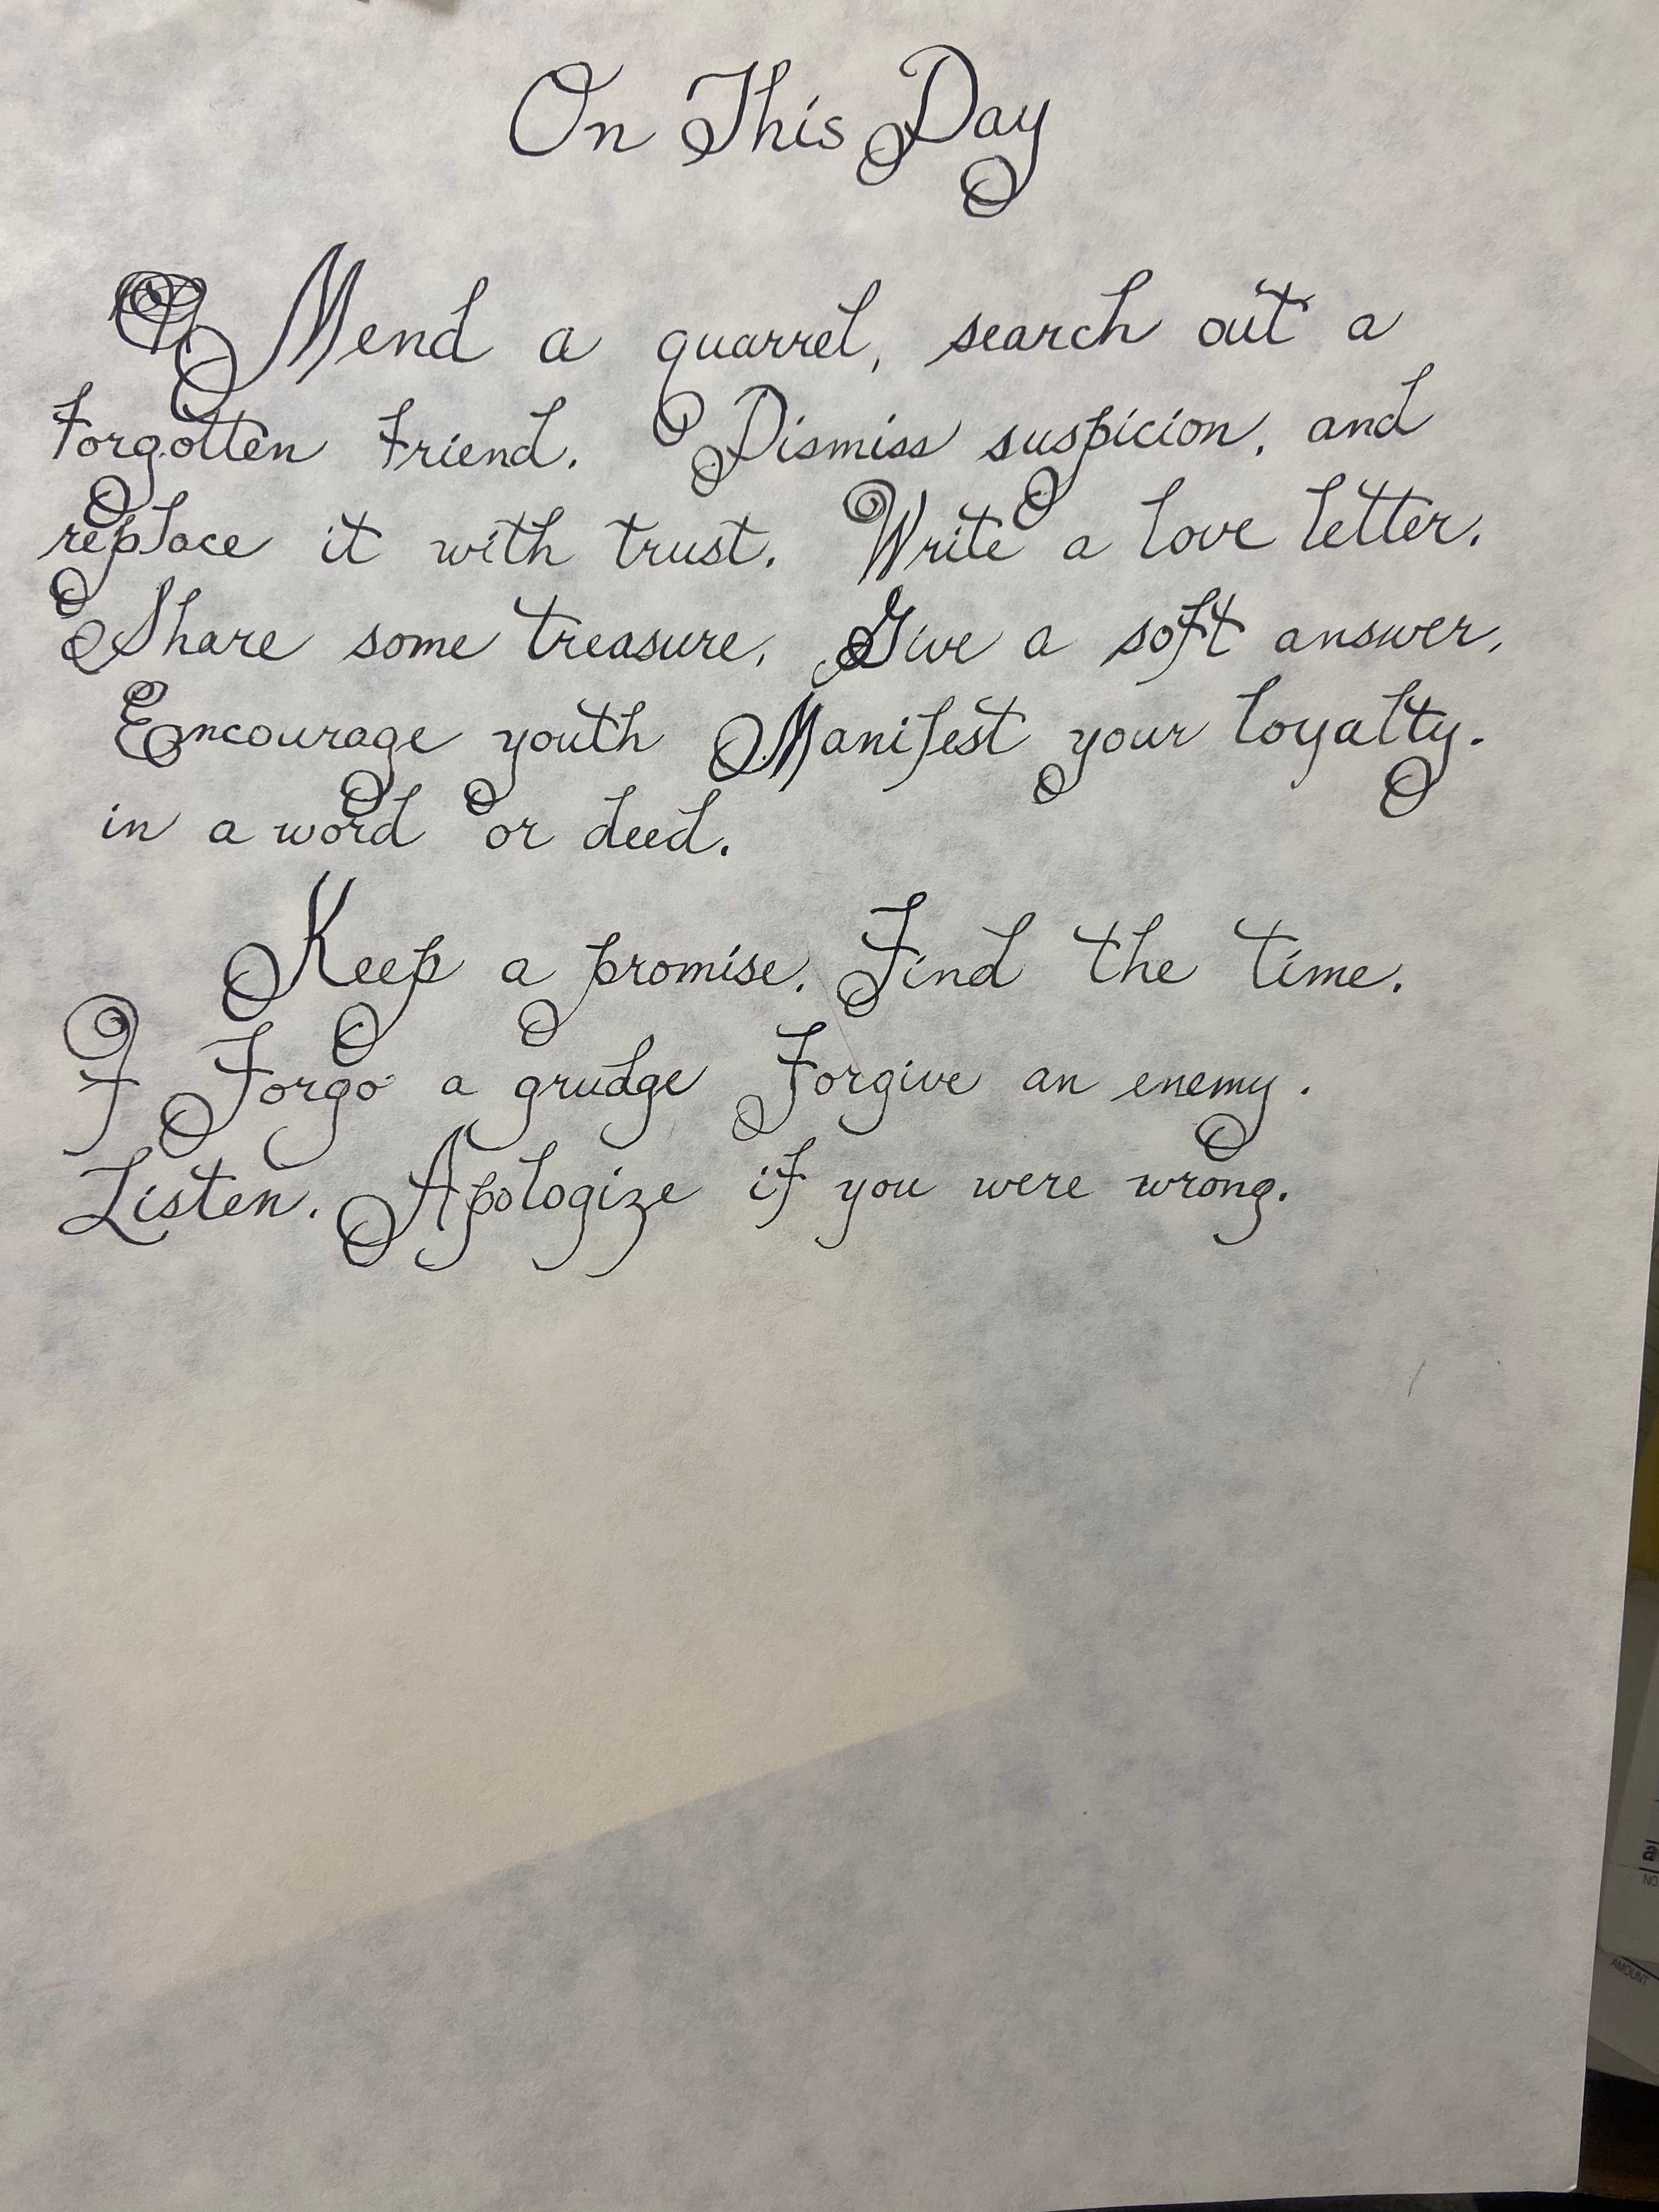 On This Day
Mend a quarrel, search out a
Forgotten Friend. Dismiss suspicion, and
replace it with trust. Write a love letter.
Share some treasure. Give a soft answer.
Encourage youth Manifest your loyalty.
in a word or deed.
Keep a promise. Find the time.
F Forgo a grudge Forgive an enemy.
Listen. Apologize if you were wrong.
NO
AMOUNT